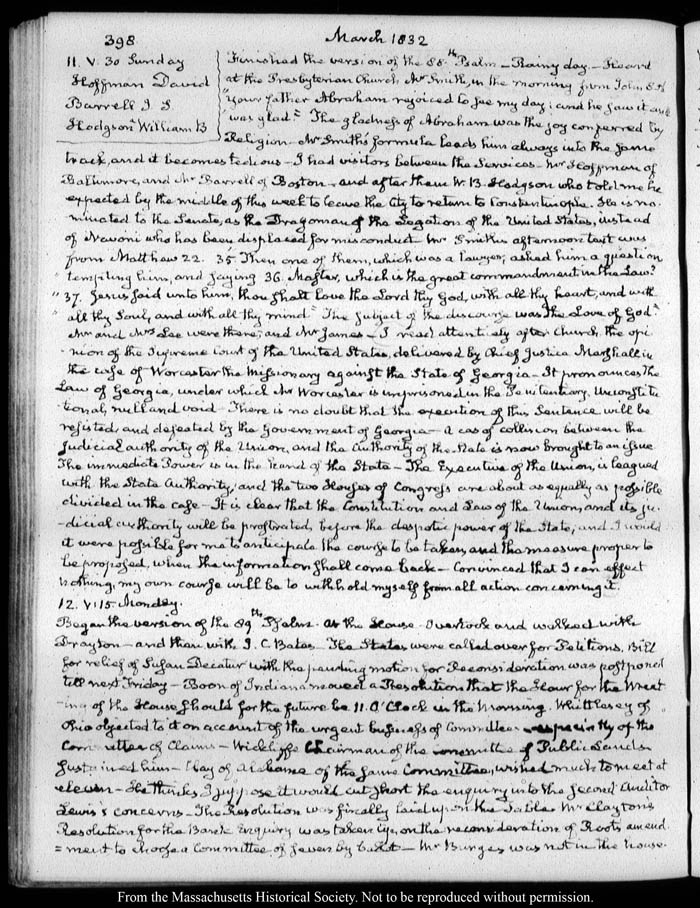 398
March 1832
11. V. 30 Sunday
Hoffman David
Barrell J S
Hodgson William B
Finished the version of the 88th Psalm – Rainy day – Heard
at the Presbyterian Church Mr Smith, in the morning from John 8.56
"Your father Abraham rejoiced to see my day; and he saw it and
"was glad" The gladness of Abraham was the joy conferred by
Religion – Mr Smith's formula leads him always into the same
track, and it becomes tedious – I had visitors between the Services – Mr Hoffman of
Baltimore, and Mr Barrell of Boston – and after them W. B. Hodgson who told me he
expected by the middle of this week to leave the City to return to Constantinople. He is no-
minated to the Senate, as the Dragoman of the Legation of the United States, instead
of Navoni who has been displaced for misconduct Mr Smith's afternoon text was
from Matthew 22. 35 Then one of them, which was a lawyer, asked him a question
tempting him, and saying 36. Master, which is the great commandment in the Law?
"37. Jesus said unto him, thou shalt love the Lord thy God, with all thy heart, and with
"all thy Soul, and with all thy mind" The subject of the discourse was the Love of God–
Mr and Mrs Lee were there, and Mr James – I read attentively after Church, the opi-
nion of the Supreme Court of the United States, delivered by Chief Justice Marshall in
the case of Worcester the Missionary against the State of Georgia – It pronounces the
Law of Georgia, under which Mr Worcester is imprisoned in the Penitentiary, Unconstitu-
tional, null and void – There is no doubt that the execution of this Sentence will be
resisted and defeated by the Government of Georgia – A case of collision between the
Judicial authority of the Union, and the Authority of the State is now brought to an issue
The immediate Power is in the hand of the State – The Executive of the Union, is leagued
with the State Authority, and the two Houses of Congress are about as equally as possible
divided in the case – It is clear that the Constitution and Law of the Union, and its ju-
-dicial authority will be prostrated, before the despotic power of the State, and I would
it were possible for me to anticipate the course to be taken, and the measure proper to
be proposed, when the information shall come back – Convinced that I can effect
nothing, my own course will be to withhold myself from all action concerning it.
12. V:15 Monday.
Began the version of the 89th Psalm. At the House. Overtook and walked with
Drayton – and then with I. C. Bates – The States were called over for Petitions. Bill
for relief of Susan Decatur with the pending motion for Reconsideration was postponed
till next Friday – Boon of Indiana moved a Resolution that the Hour for the Meet-
-ing of the House should for the future be 11. O'Clock in the Morning. Whittlesey of
Ohio objected to it on account of the urgent business of Committees especially of the
Committee of Claims – Wickliffe Chairman of the Committee of Public Lands
sustained him – Clay of Alabama of the same Committee, wished much to meet at
eleven – He thinks I suppose it would cut short the enquiry into the second Auditor
Lewis's concerns – The Resolution was finally laid upon the Table. Mr Clayton's
Resolution for the Bank Enquiry was taken up, on the reconsideration of Root's amend
=ment to choose a Committee of seven by ballot – Mr Burges was not in the house.
From the Massachusetts Historical Society. Not to be reproduced without permission.